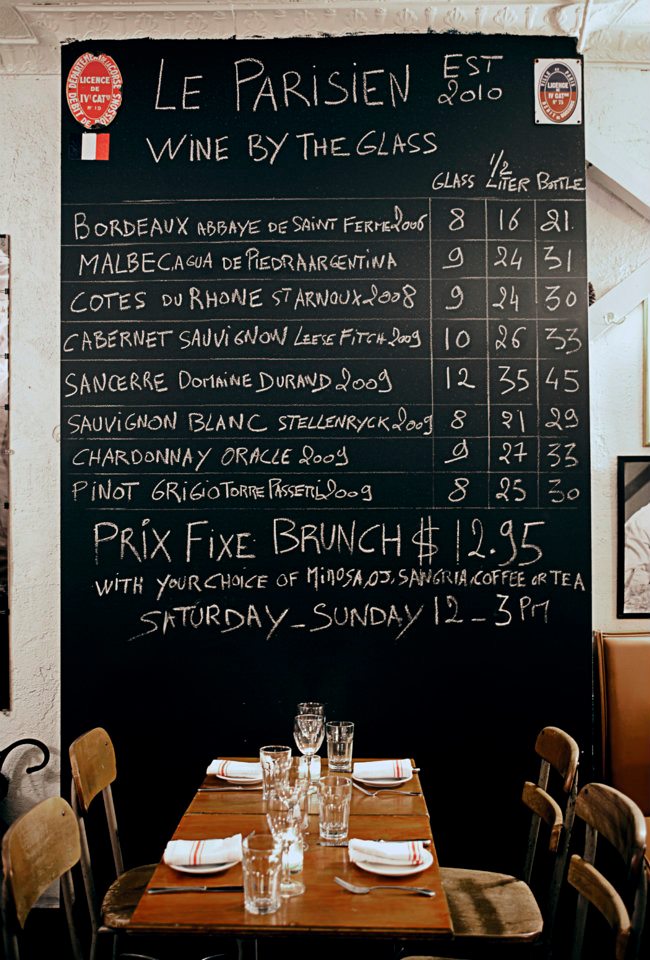 LE PARISIEN EST 2010
WINE BY THE GLASS
GLASS 1/2 LITER BOTTLE
BORDEAUX ABBAYE DE SAINT FERME 2006 8 16 21
MALBEC AGUA DE PIEDRA ARGENTINA 9 24 31
COTES DU RHONE ST ARNOUX 2008 9 24 30
CABERNET SAUVIGNON LEESE FITCH 2009 10 26 33
SANCERRE DOMAINE DURAND 2009 12 35 45
SAUVIGNON BLANC STELLENRYCK 2009 8 21 29
CHARDONNAY ORACLE 2009 9 27 33
PINOT GRIGIO TORRE PASSETTI 2009 8 25 30
PRIX FIXE BRUNCH $ 12.95
WITH YOUR CHOICE OF MIMOSA, OJ, SANGRIA, COFFEE OR TEA
SATURDAY_SUNDAY 12_3PM
LICENCE
DE
IVᵉ CATⁱᵉ
N° 15
LICENCE